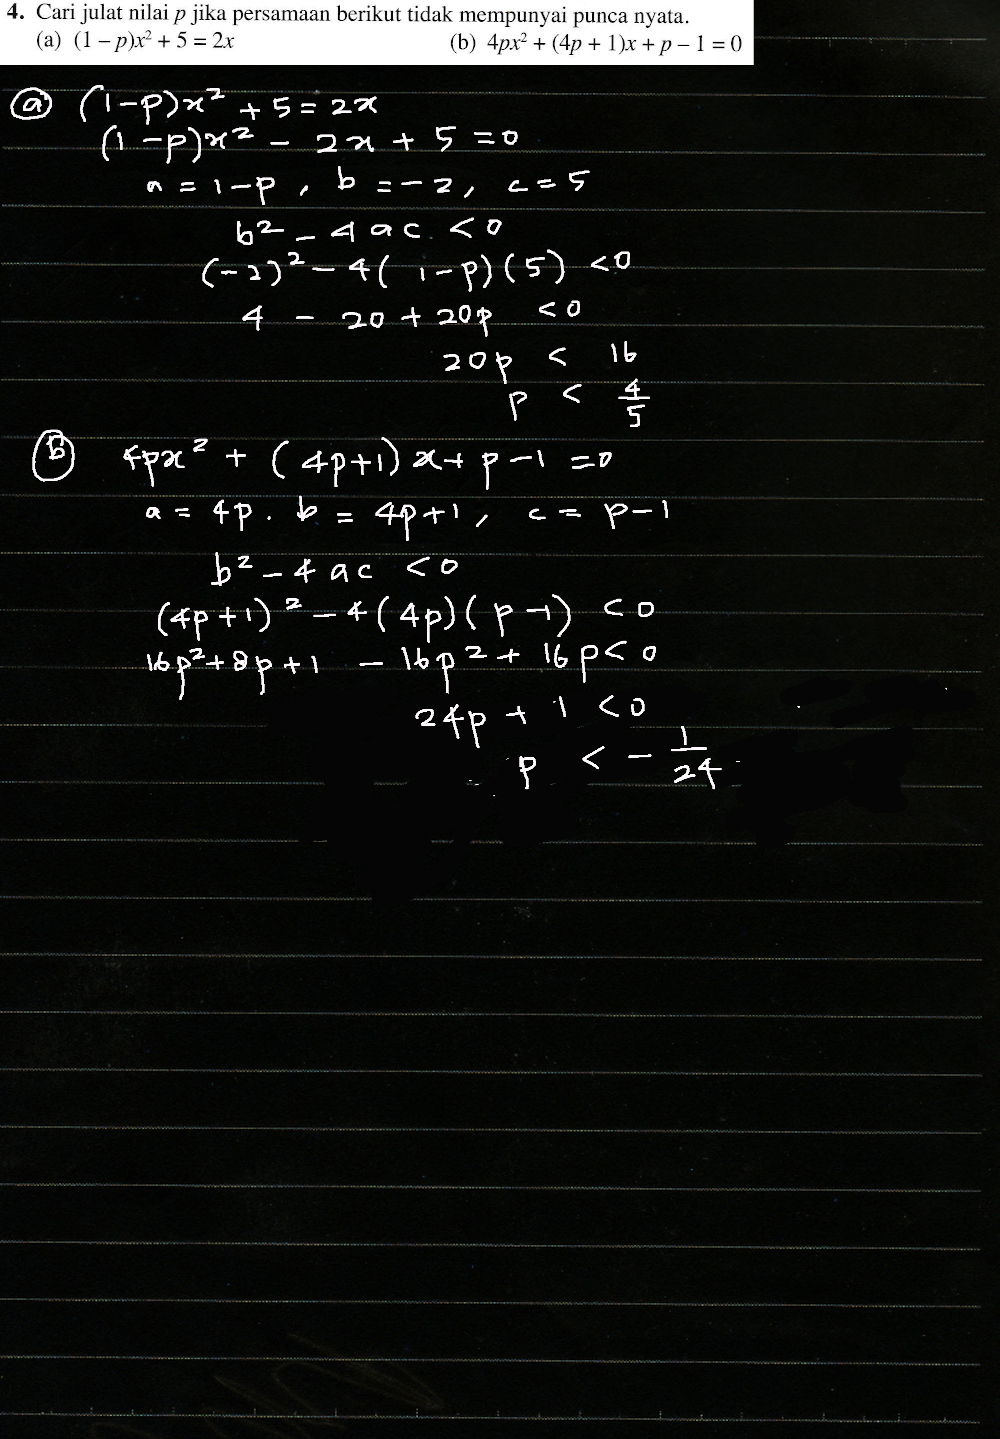 4. Cari julat nilai p jika persamaan berikut tidak mempunyai punca nyata.
(a) (1 – p)x² + 5 = 2x (b) 4px² + (4p + 1)x + p – 1 = 0
(a) (1-p)x² + 5 = 2x
(1-p)x² - 2x + 5 = 0
a = 1-p, b = -2, c = 5
b² - 4ac < 0
(-2)² - 4(1-p)(5) < 0
4 - 20 + 20p < 0
20p < 16
p < 4/5
(b) 4px² + (4p+1)x + p-1 = 0
a = 4p. b = 4p+1, c = p-1
b² - 4ac < 0
(4p+1)² - 4(4p)(p-1) < 0
16p² + 8p + 1 - 16p² + 16p < 0
24p + 1 < 0
p < - 1/24